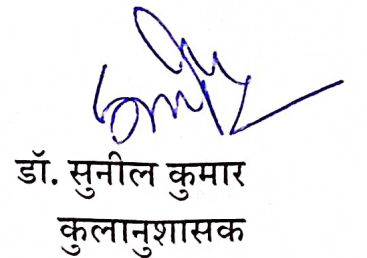 डॉ. सुनील कुमार
कुलानुशासक